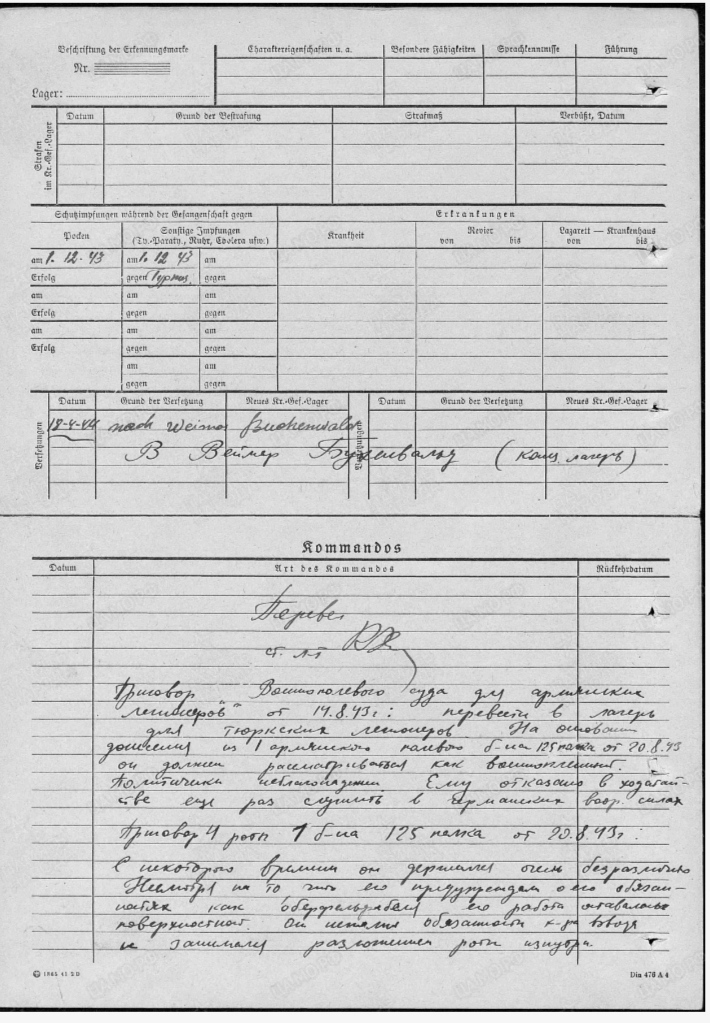 Beschriftung der Erkennungsmarke
Nr.
Lager:
Charaktereigenschaften u. a. Besondere Fähigkeiten Sprachkenntnisse Führung
Strafen im Kr.-Gef.-Lager
Datum Grund der Bestrafung Strafmaß Verbüßt, Datum
Schutzimpfungen während der Gefangenschaft gegen
Erkrankungen
Pocken
Sonstige Impfungen
(Ty.-Paraty., Ruhr, Cholera usw.)
Krankheit
Revier
von bis
Lazarett — Krankenhaus
von bis
am 1. 12. 43 am 1. 12 43 am
Erfolg gegen gegen
am am am
Erfolg gegen gegen
am am am
Erfolg gegen gegen
am am
gegen gegen
Versetzungen
Datum Grund der Versetzung Neues Kr.-Gef.-Lager Datum Grund der Versetzung Neues Kr.-Gef.-Lager
18-4-44 nach Weimar Buchenwald
В Веймер Бухенвальд (конц. лагерь)
Kommandos
Datum Art des Kommandos Rückkehrdatum
Перевел
ст. л-т
Приговор Военнополевого суда для армянских
легионеров" от 14.8.43г: перевести в лагерь
для тюркских легионеров На основании
донесения из 1 армянского полевого б-на 125 полка от 20.8.43
он должен рассматриваться как военнопленный.
Политически неблагонадежен. Ему отказано в ходатай-
стве еще раз служить в германских воор. силах
Приговор 4 роты 1 б-на 125 полка от 20.8.43г:
С некоторого времени он держался очень безразлично
Несмотря на то что его предупреждали о его обязан-
ностях как оберфельдфебеля его работа оставалась
поверхностной. Он исполнял обязанности к-ра взвода
и занимался разложением роты изнутри.
Din 476 A 4